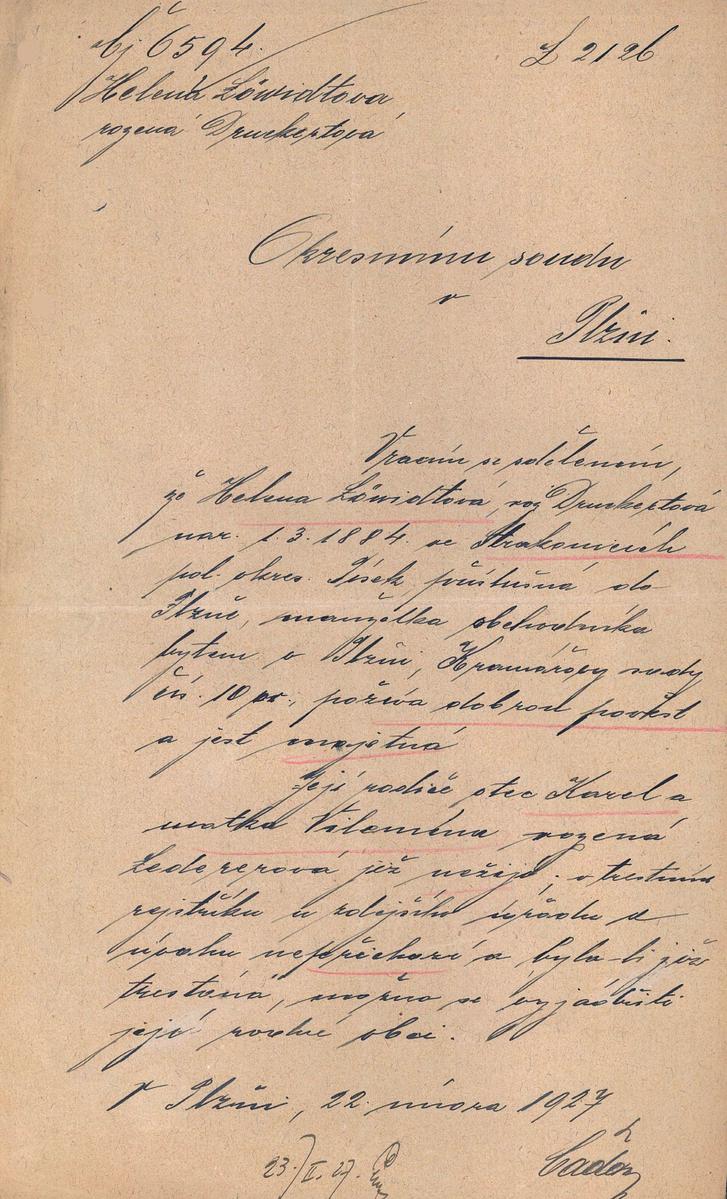 čj 6594.
Z 2126
Helena Löwidtová
rozená Druckertová
Okresnímu soudu
v
Plzni.
Vracím se sdělením,
že Helena Löwidtová, roz. Druckertová
nar. 1.3.1884. ve Strakonicích
pol. okres. Písek, příslušná do
Plzně, manželka obchodníka
bytem v Plzni, Kramářovy sady
čís. 10, požívá dobrou pověst
a jest majetná
Její rodiče otec Karel a
matka Vilemína rozená
Ledererová již nežijí; v trestním
rejstříku u zdejšího úřadu v
úvahu nepřichází a byla-li již
trestána, možno se vyjádřiti
její rodné obci.
V Plzni, 22. února 1927
23./II. 27.